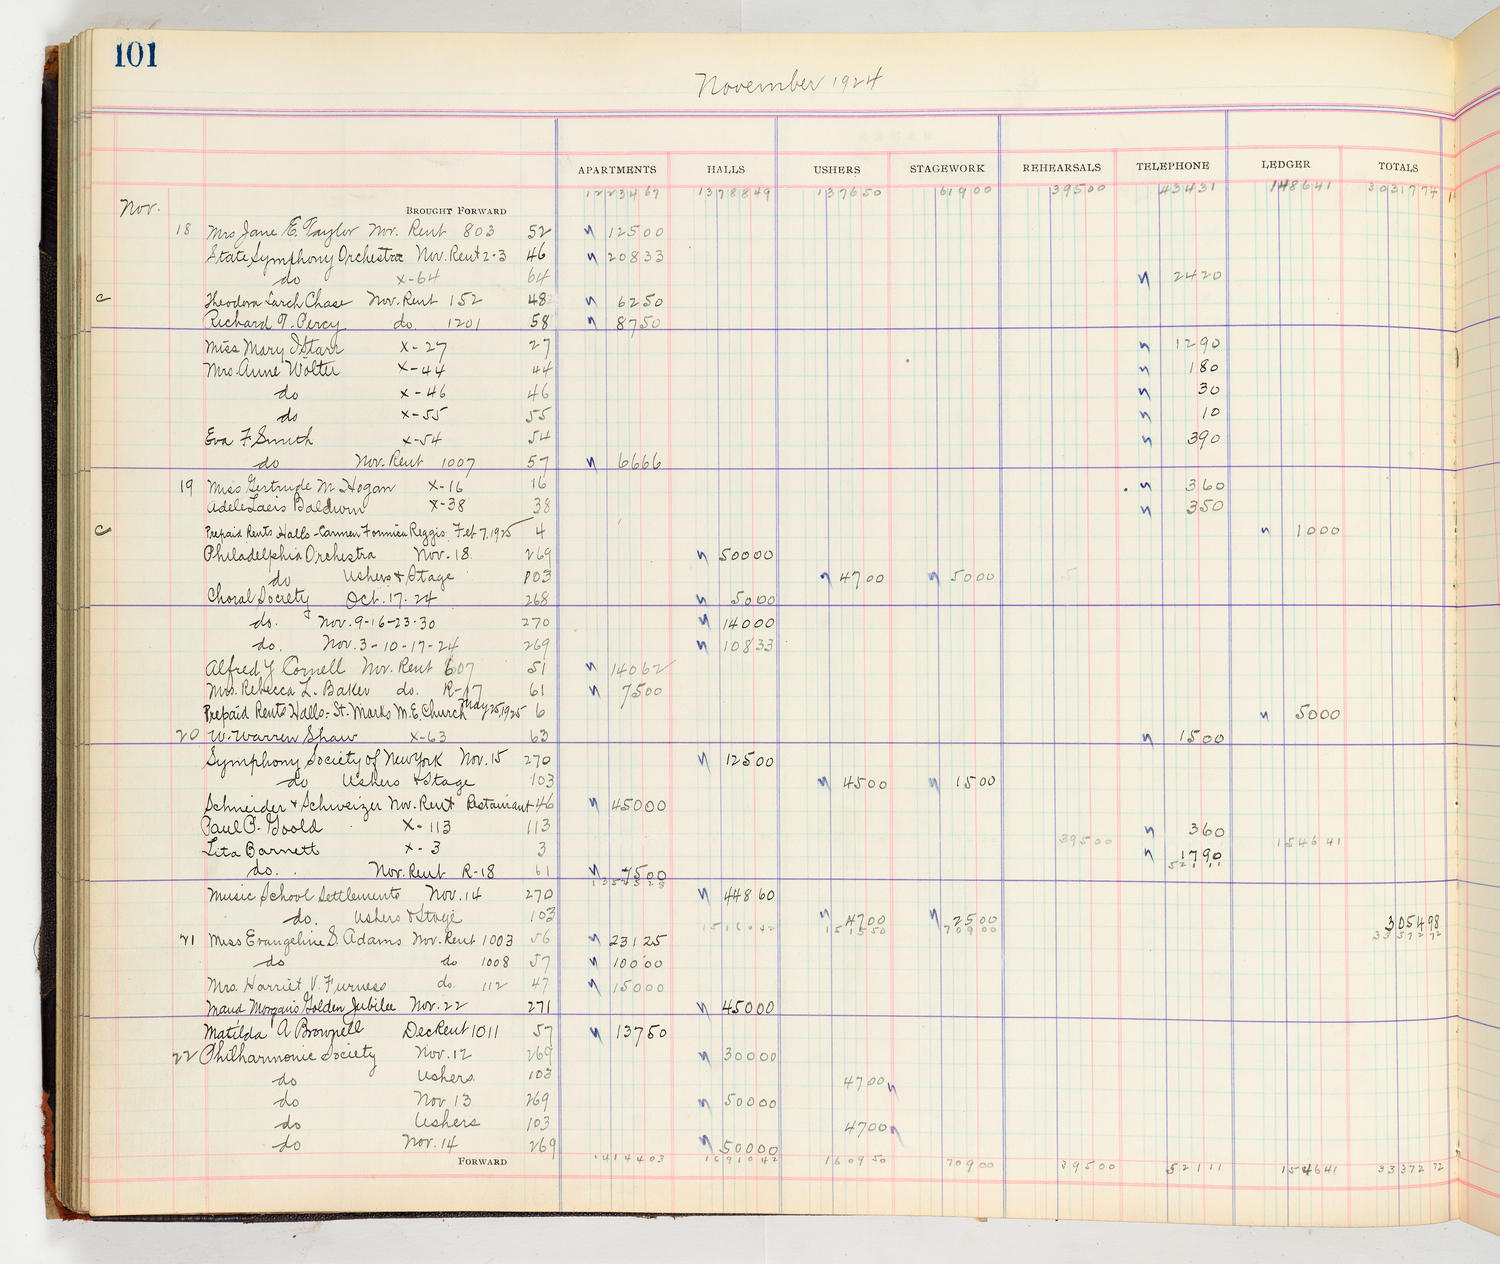 101
November 1924
APARTMENTS HALLS USHERS STAGEWORK REHEARSALS TELEPHONE LEDGER TOTALS
Nov. BROUGHT FORWARD 1223467 1378849 137650 61900 39500 43431 148641 3031774
18 Mrs Jane E. Taylor Nov. Rent 803 52 12500
State Symphony Orchestra Nov. Rent 2-3 46 20833
do X-64 64 2420
c Theodora Larch Chase Nov. Rent 152 48 6250
Richard T. Percy do. 1201 58 8750
Miss Mary I Starr X-27 27 1290
Mrs. Anne Wolter X-44 44 180
do X-46 46 30
do X-55 55 10
Eva F Smith X-54 54 390
do Nov. Rent 1007 57 6666
19 Miss Gertrude M Hogan X-16 16 360
Adele Laeis Baldwin X-38 38 350
c Prepaid Rents Halls - Carmen Formica Reggis Feb 7, 1925 4 1000
Philadelphia Orchestra Nov. 18. 269 50000
do Ushers & Stage 103 4700 5000
Choral Society Oct. 17-24 268 5000
do. Nov. 9-16-23-30 270 14000
do. Nov. 3-10-17-24 269 10833
Alfred Y Cornell Nov. Rent 607 51 14062
Mrs. Rebecca L. Baker do. R-17 61 7500
Prepaid Rents Halls - St. Marks M.E. Church May 25, 1925 6 5000
20 W. Warren Shaw X-63 63 1500
Symphony Society of New York Nov. 15 270 12500
do Ushers & Stage 103 4500 1500
Schneider & Schweizer Nov. Rent Restaurant 46 45000
Paul P. Goold X-113 113 360
39500 154641
Lita Barnett X-3 3 1790
52111
do. Nov. Rent R-18 61 7500
Music School Settlements Nov. 14 270 44860
do. Ushers & Stage 103 4700 2500
1516042 151550 70900 305498
21 Miss Evangeline S. Adams Nov. Rent 1003 56 23125
do do 1008 57 10000
Mrs. Harriet V. Furness do. 112 47 15000
Maud Morgan's Golden Jubilee Nov. 22 271 45000
Matilda A Brownell Dec Rent 1011 57 13750
22 Philharmonic Society Nov. 12 269 30000
do Ushers 103 4700
do Nov 13 269 50000
do Ushers 103 4700
do Nov. 14 269 50000
FORWARD 1414403 1691042 160950 70900 39500 52111 154641 3337272